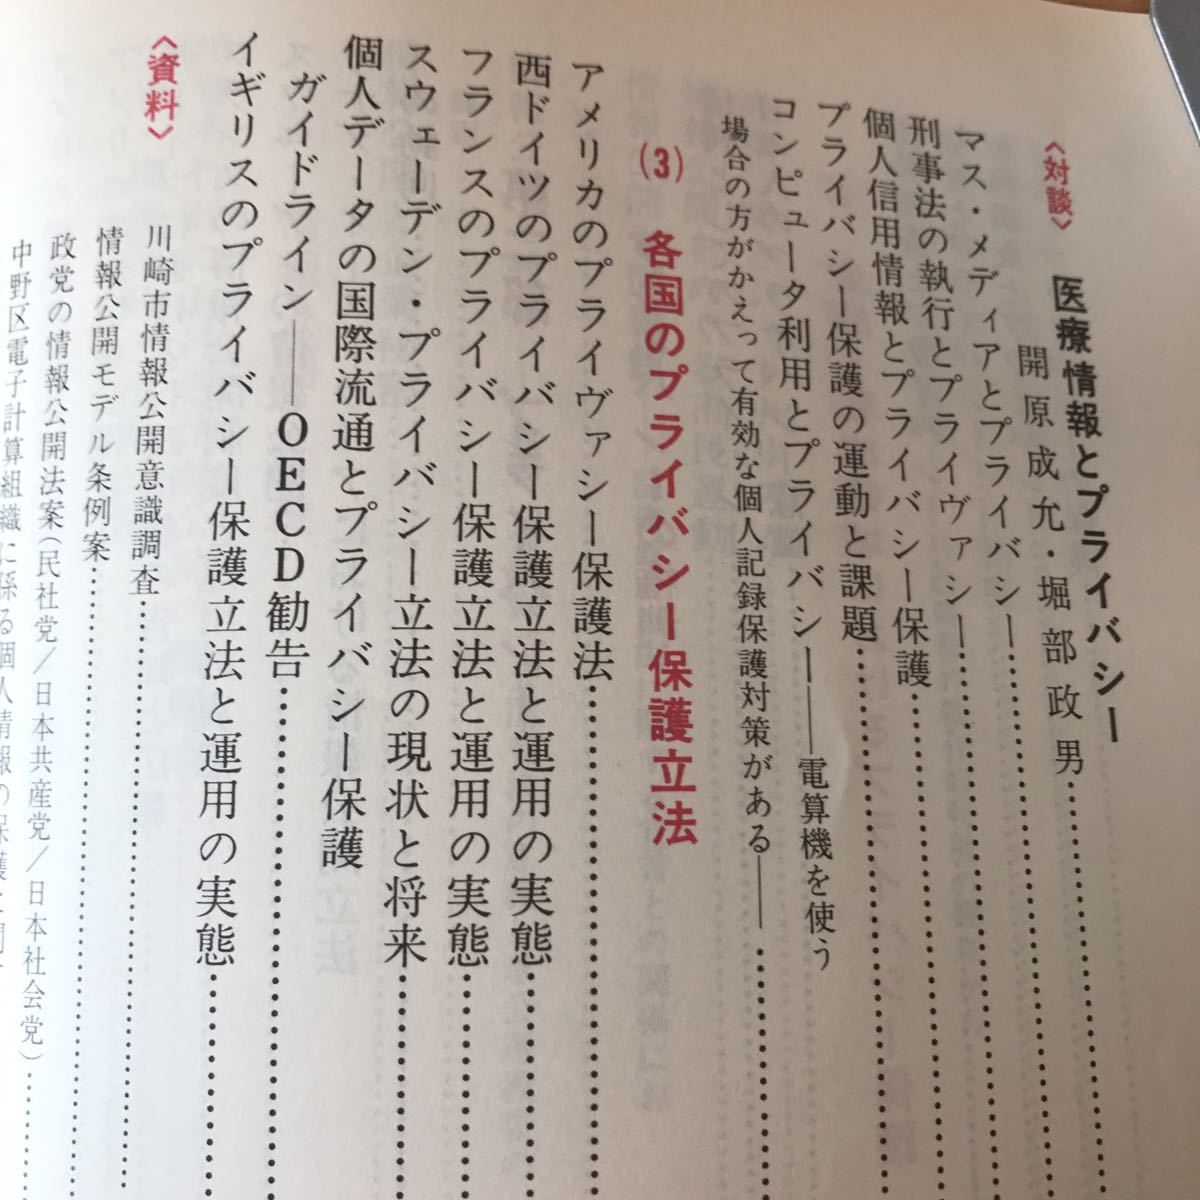 〈対談〉 医療情報とプライバシー
開原成允・堀部政男
マス・メディアとプライバシー
刑事法の執行とプライヴァシー
個人信用情報とプライバシー保護
プライバシー保護の運動と課題
コンピュータ利用とプライバシー——電算機を使う
場合の方がかえって有効な個人記録保護対策がある——
(3) 各国のプライバシー保護立法
アメリカのプライヴァシー保護法
西ドイツのプライバシー保護立法と運用の実態
フランスのプライバシー保護立法と運用の実態
スウェーデン・プライバシー立法の現状と将来
個人データの国際流通とプライバシー保護
ガイドライン——OECD勧告
イギリスのプライバシー保護立法と運用の実態
〈資料〉
川崎市情報公開意識調査
情報公開モデル条例案
政党の情報公開法案(民社党/日本共産党/日本社会党)
中野区電子計算組織に係る個人情報の保護